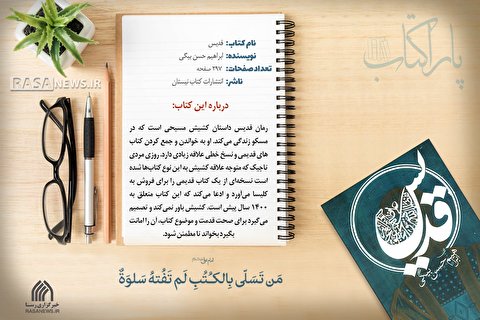 پاراکتاب
RASANEWS.IR
نام کتاب: قدیس
نویسنده: ابراهیم حسن بیگی
تعداد صفحات: ۲۹۷ صفحه
ناشر: انتشارات کتاب نیستان
درباره این کتاب:
رمان قدیس داستان کشیش مسیحی است که در
مسکو زندگی می‌کند. او به خواندن و جمع کردن کتاب
های قدیمی و نسخ خطی علاقه زیادی دارد. روزی مردی
تاجیک که متوجه علاقه کشیش به این نوع کتاب‌ها شده
است نسخه‌ای از یک کتاب قدیمی را برای فروش به
کلیسا می‌آورد و ادعا می‌کند که این کتاب متعلق به
۱۴۰۰ سال پیش است. کشیش باور نمی‌کند و تصمیم
می‌گیرد برای صحت قدمت و موضوع کتاب، آن را امانت
بگیرد بخواند تا مطمئن شود.
قدیس
ابراهیم حسن بیگی
مَن تَسَلّی بِالکُتُبِ لَم تَفُتهُ سَلوَةٌ
خبرگزاری رسا
RASANEWS.IR